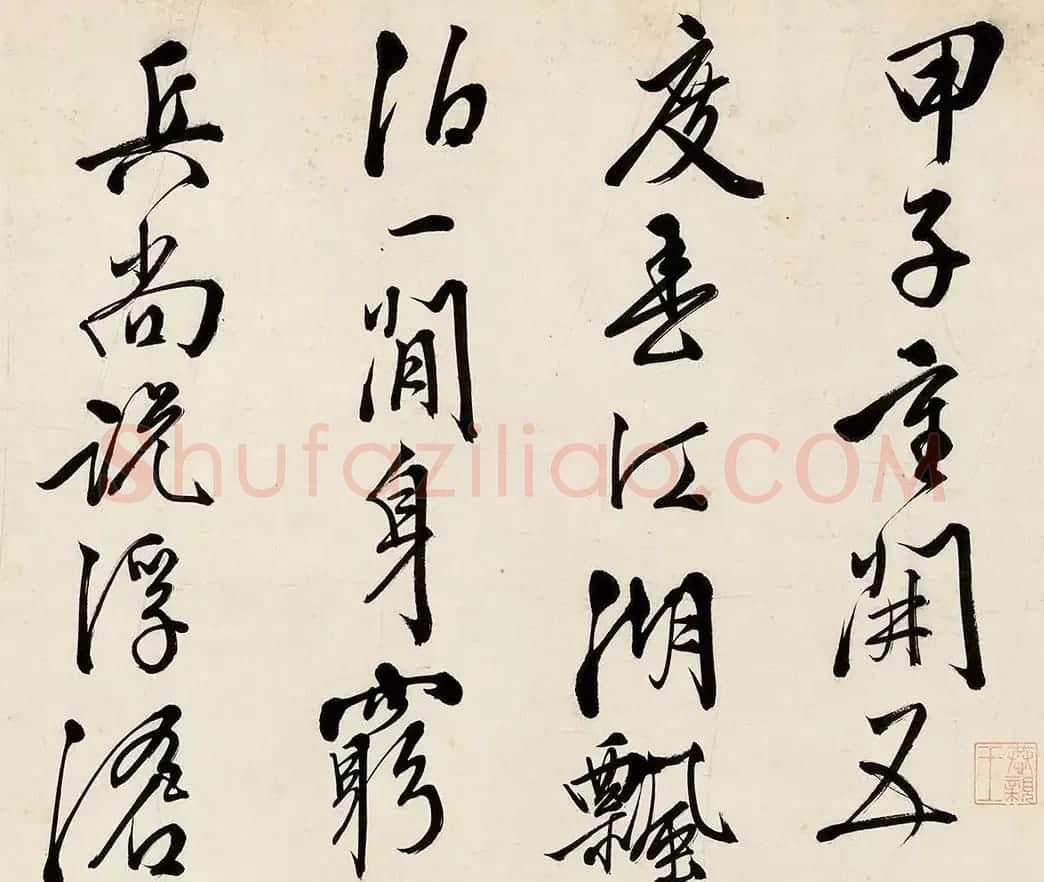 甲子重開五
度春江湖飄
泊一閒身窮
兵尚說浮滄
Shufaziliao.COM